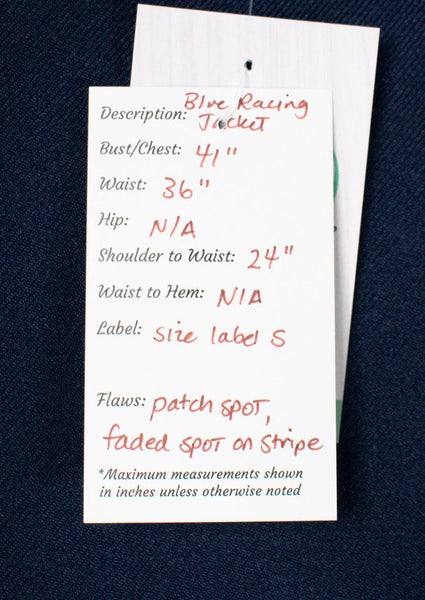 Description: Blue Racing
Jacket
Bust/Chest: 41"
Waist: 36"
Hip: N/A
Shoulder to Waist: 24"
Waist to Hem: N/A
Label: size label S
Flaws: patch spot,
faded spot on stripe
*Maximum measurements shown
in inches unless otherwise noted